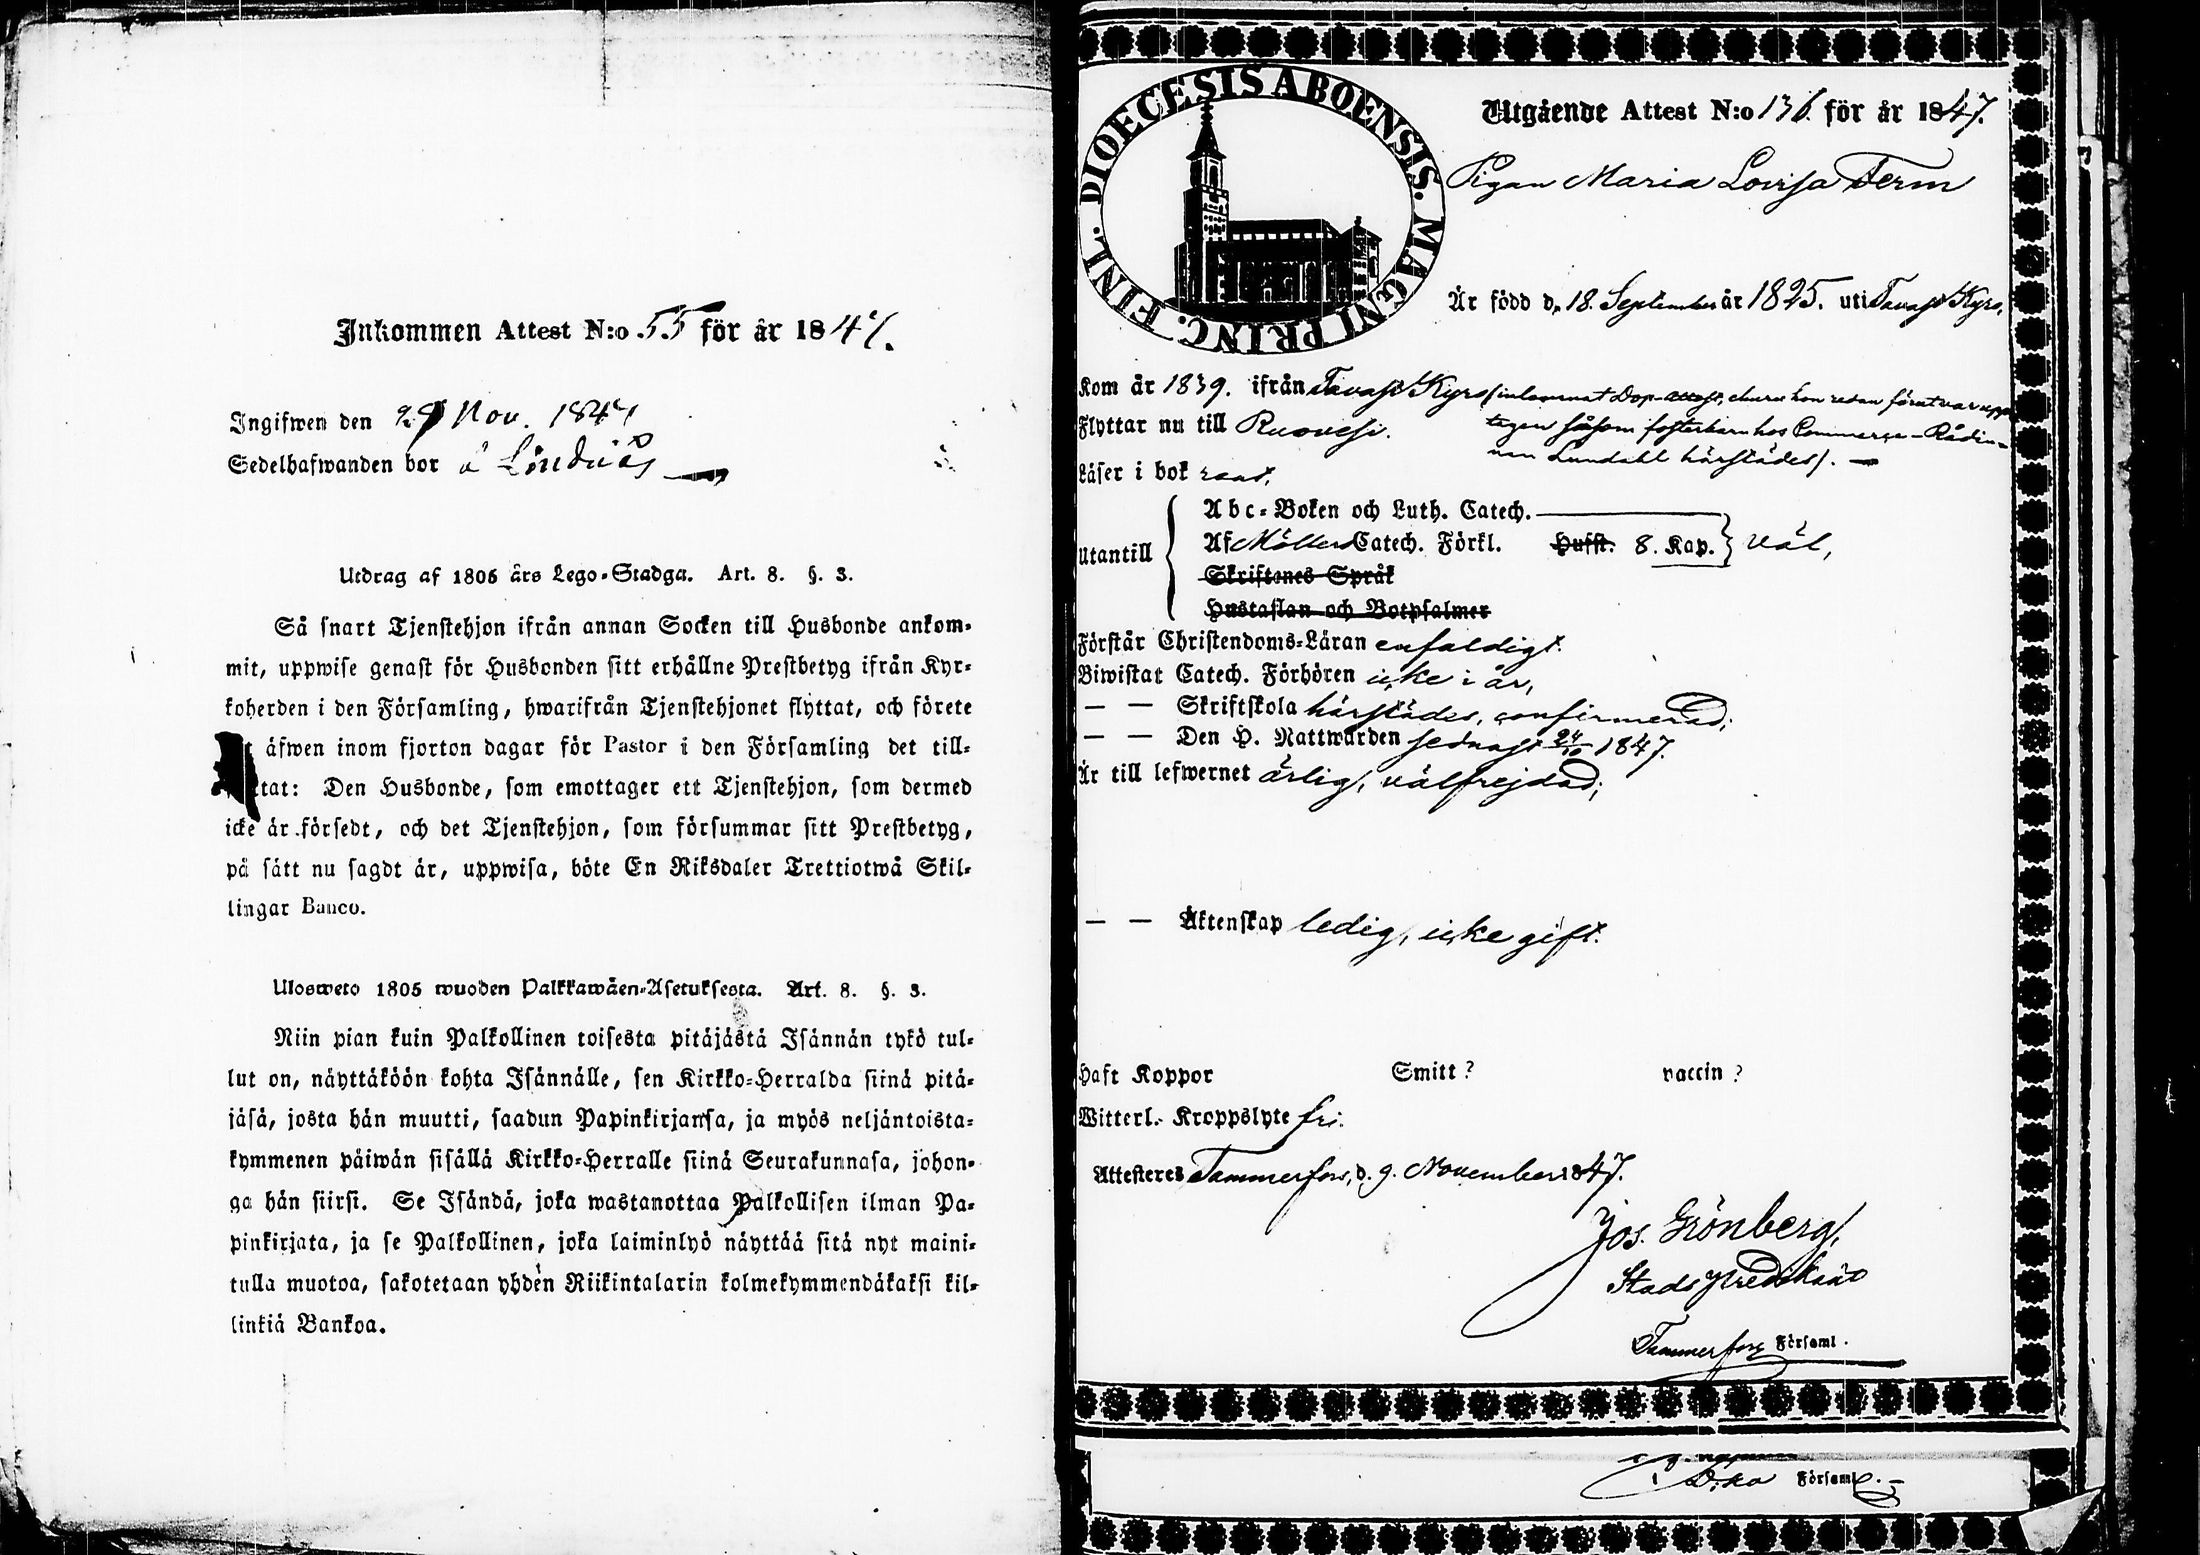 Inkommen Attest N:o 55 för år 1847.
Ingifwen den 29 Nov. 1847
Sedelhafwanden bor å Lindnäs
Utdrag af 1805 års Lego-Stadga. Art. 8. §. 3.
Så snart Tjenstehjon ifrån annan Socken till Husbonde ankom-
mit, uppwise genast för Husbonden sitt erhållne Prestbetyg ifrån Kyr-
koherden i den Församling, hwarifrån Tjenstehjonet flyttat, och förete
äfwen inom fjorton dagar för Pastor i den Församling det till-
tat: Den Husbonde, som emottager ett Tjenstehjon, som dermed
icke är försedt, och det Tjenstehjon, som försummar sitt Prestbetyg,
på sätt nu sagdt är, uppwisa, böte En Riksdaler Trettiotwå Skil-
lingar Banco.
Ulosweto 1805 wuoden Palkkawäen-Asetuksesta. Art. 8. §. 3.
Niin pian kuin Palkollinen toisesta pitäjästä Isännän tykö tul-
lut on, näyttäköön kohta Isännälle, sen Kirkko-Herralda siinä pitä-
jäsä, josta hän muutti, saadun Papinkirjansa, ja myös neljäntoista-
kymmenen päiwän sisällä Kirkko-Herralle siinä Seurakunnasa, johon-
ga hän siirsi. Se Isändä, joka wastanottaa Palkollisen ilman Pa-
pinkirjata, ja se Palkollinen, joka laiminlyö näyttää sitä nyt maini-
tulla muotoa, sakotetaan yhden Riikintalarin kolmekymmendäkaksi kil-
linkiä Bankoa.
FINL. DIOECESIS ABOENSIS. MAGNI PRINC.
Utgående Attest N:o 136 för år 1847.
Pigan Maria Lovisa Ferm
Är född d. 18. September år 1825. uti Tavast Kyro.
Kom år 1839. ifrån Tavast Kyro (inlemnat Dop-attest, churu hon redan förut var upp-
tagen såsom fosterbarn hos Commerce-Rådin-
nan Lundahl härstädes). —
Flyttar nu till Ruovesi.
Läser i bok rant,
Utantill
Abc-Boken och Luth. Catech.
Af Möllers Catech. Förkl. Husst. 8. Kap. väl,
Skriftenes Språk
Hustaflan och Botpsalmer
Förstår Christendoms-Läran enfaldigt.
Biwistat Catech. Förhören icke i år,
— — Skriftskola härstädes, confirmerad;
— — Den H. Nattwarden sednast 24/10 1847.
Är till lefwernet ärlig, välfrejdad;
— — Äktenskap ledig, icke gift.
Haft Koppor Smitt? vaccin?
Witterl. Kroppslyte fri.
Attesteres Tammerfors, d. 9. November 1847.
Jos. Grönberg,
Stads Predikant
Tammerfors Församl.
Församl.